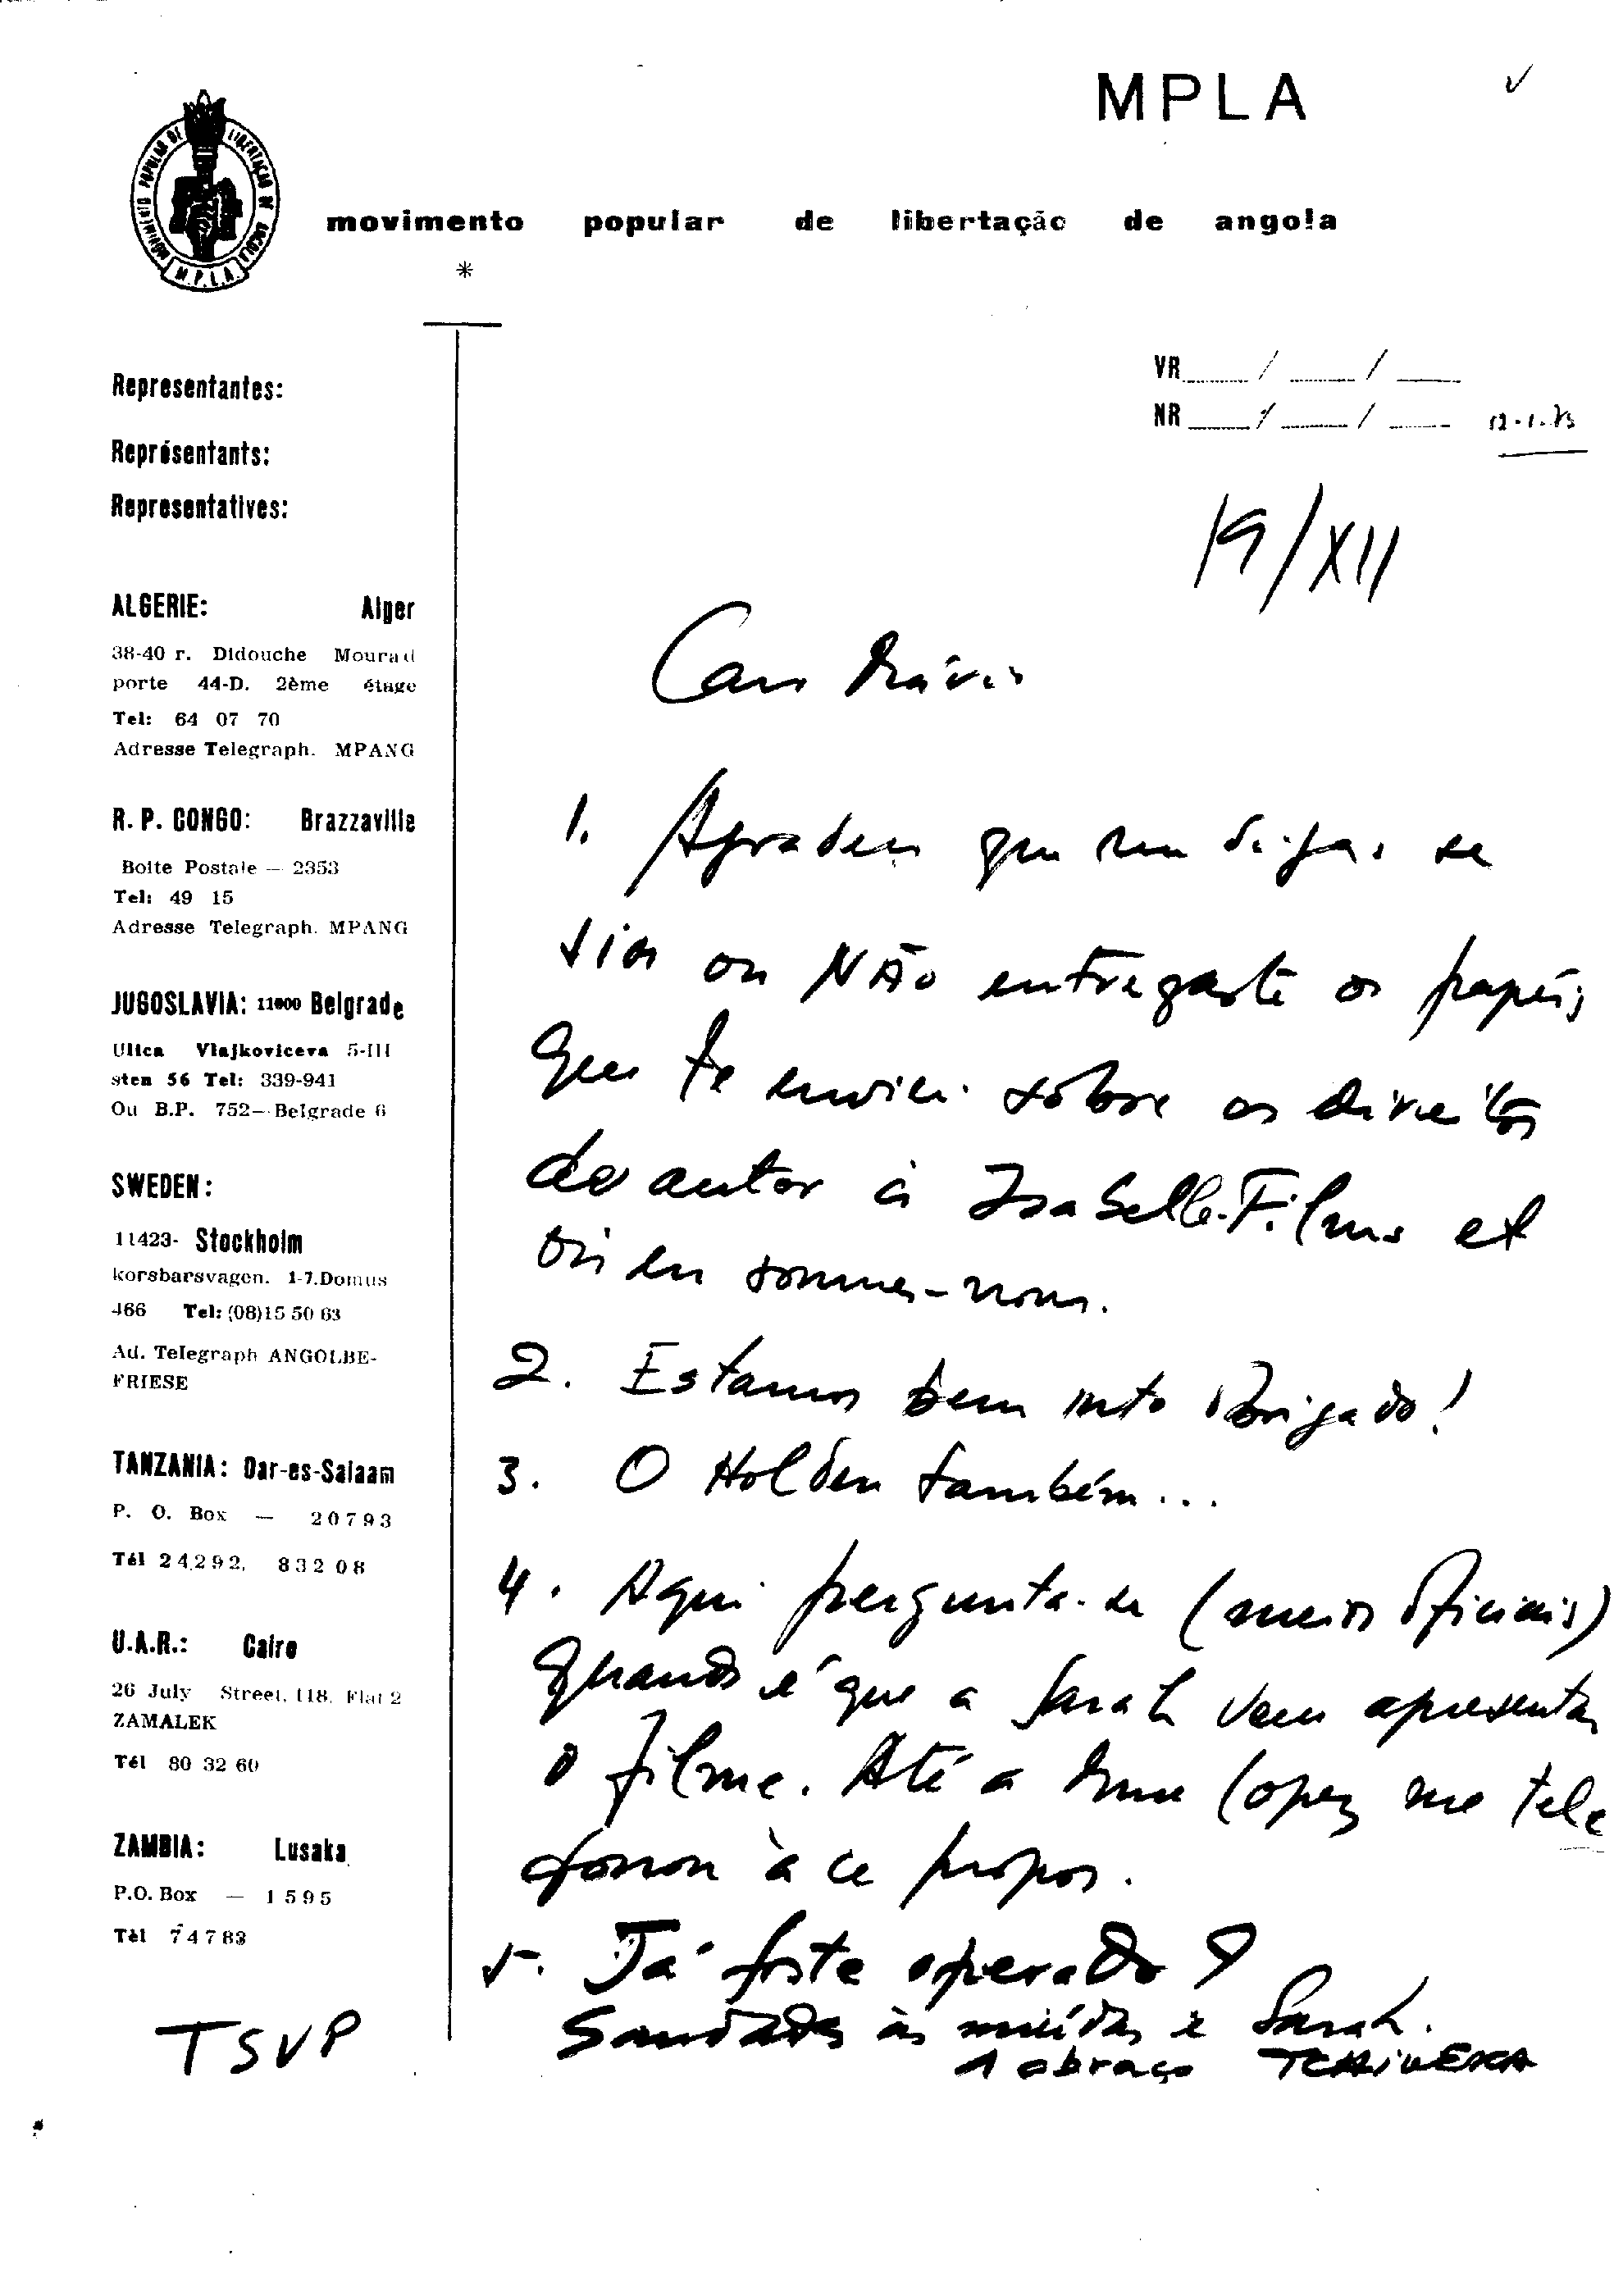 MPLA
MOVIMENTO POPULAR DE LIBERTAÇÃO DE ANGOLA
M.P.L.A.
movimento popular de libertação de angola
*
VR / /
NR / / 12-1-73
Representantes:
Représentants:
Representatives:
ALGERIE: Alger
38-40 r. Didouche Mourad
porte 44-D. 2ème étage
Tel: 64 07 70
Adresse Telegraph. MPANG
R. P. CONGO: Brazzaville
Boite Postale — 2353
Tel: 49 15
Adresse Telegraph. MPANG
JUGOSLAVIA: 11000 Belgrade
Ulica Vlajkoviceva 5-III
sten 56 Tel: 339-941
Ou B.P. 752—Belgrade 6
SWEDEN:
11423- Stockholm
korsbarsvagen. 1-7.Domus
466 Tel: (08)15 50 63
Ad. Telegraph ANGOLBE-
FRIESE
TANZANIA: Dar-es-Salaam
P. O. Box — 20793
Tél 24292, 83208
U.A.R.: Cairo
26 July Street, 118, Flat 2
ZAMALEK
Tél 80 32 60
ZAMBIA: Lusaka
P.O. Box — 1595
Tél 74783
TSVP
19/XII
Caro Mário
1. Agradeço que me digas se
sim ou NÃO entregaste os papéis
que te enviei sobre os direitos
de autor à Isabelle-Films et
où en sommes-nous.
2. Estamos bem mto obrigado!
3. O Holden também...
4. Aqui pergunta-se (meios oficiais)
quando é que a Sarah vem apresentar
o filme. Até a Mme Lopez me tele
fonou à ce propos.
5. Já foste operado?
Saudades às miúdas e Sarah.
1 abraço TCHIWEKA